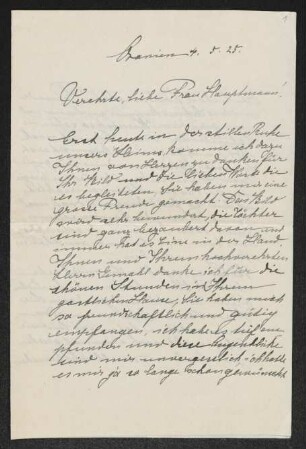 4. 5. 28.
Verehrte, liebe Frau Hauptmann!
Erst heute in der stillen Ruhe
unseres Heims, komme ich dazu
Ihnen von Herzen zu danken für
Ihr Bild und die lieben Worte die
es begleiteten. Sie haben mir eine
grosse Freude gemacht. Das Bild
wird sehr bewundert, die Töchter
sind ganz bezaubert davon und
immer hat es Eine in der Hand
Ihnen und Ihrem hochverehrten
Herrn Gemahl danke ich für die
schönen Stunden in Ihrem
gastlichen Hause, Sie haben mich
so freundschaftlich und gütig
empfangen, ich habe es tief em-
pfunden und diese Augenblicke
sind mir unvergesslich ich hatte
es mir ja so lange schon gewünscht
1